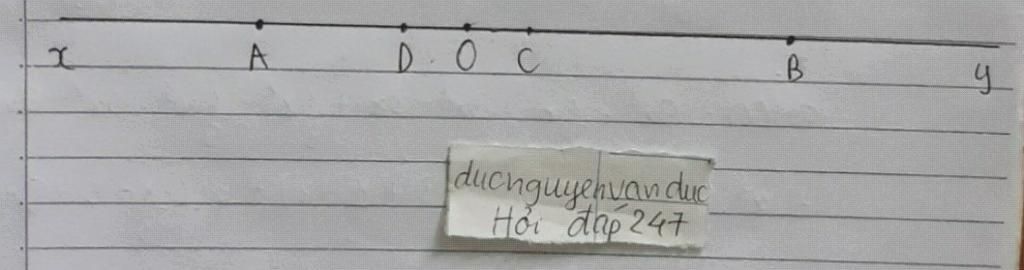 x A D O C B y
ducnguyenvanduc
Hỏi đáp 247